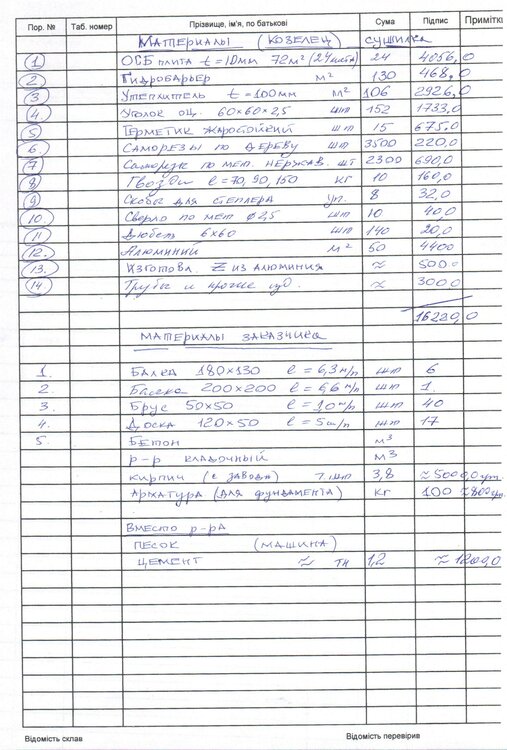 Пор. № Таб. номер Прізвище, ім'я, по батькові Сума Підпис Примітки
Материалы (Козелец) сушилка
1 ОСБ плита t=10мм 72м² (24листа) 24 4056,0
2 Гидробарьер м² 130 468,0
3 Утеплитель t=100мм м² 106 2926,0
4. Уголок оц. 60х60х2,5 шт 152 1733,0
5 Герметик жаростойкий шт 15 675,0
6. Саморезы по дереву шт 3500 220,0
7 Саморезы по мет. нержав. шт 2300 690,0
8 Гвозди l=70, 90, 150 кг 10 160,0
9 Скобы для степлера уп. 8 32,0
10. Сверло по мет ф 2,5 шт 10 40,0
11 Дюбель 6х60 шт 140 20,0
12. Алюминий м² 50 4400
13. Изготовл. Z из алюминия ≈ 500,0
14. Трубы и прочие изд. ≈ 300,0
16220,0
Материалы заказчика
1. Балка 180×130 l=6,3м/п шт 6
2. Балка 200×200 l=6,6м/п шт 1.
3. Брус 50×50 l=10м/п шт 40
4. Доска 120×50 l=5м/п шт 17
5. Бетон м³
р-р кладочный м³
кирпич (с завода) т.шт 3,8 ≈5000,0
Арматура (для фундамента) кг 100 ≈800
Вместо р-ра
песок (машина)
цемент ≈ тн 1,2 ≈1200,0
Відомість склав Відомість перевірив